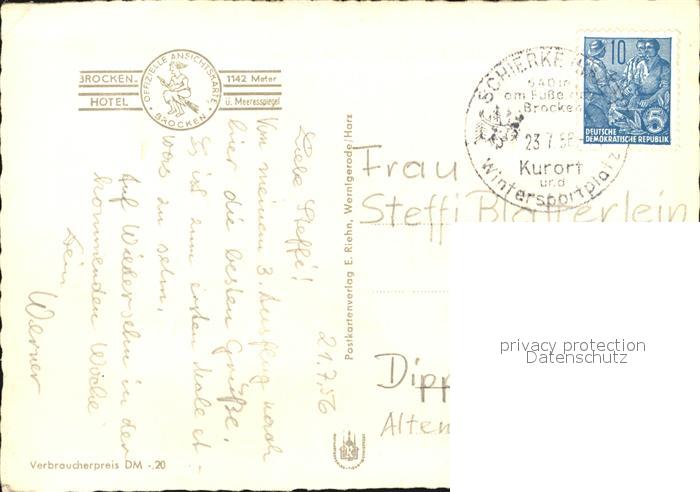 BROCKEN-
HOTEL
OFFIZIELLE ANSICHTSKARTE
BROCKEN
1142 Meter
ü. Meeresspiegel
21.7.56
Liebe Steffi!
Von meinem 3. Ausflug nach
hier die besten Grüße.
Es ist zum ersten Male et-
was zu sehn.
Auf Wiedersehn in der
kommenden Woche
Dein
Werner
Verbraucherpreis DM -.20
Postkartenverlag E. Riehn, Wernigerode/Harz
SCHIERKE
am Fuße
Brocken
23 7 56
Kurort
und
Wintersportplatz
10
DEUTSCHE
DEMOKRATISCHE REPUBLIK
5
Frau
Steffi Blätterlein
Dipp
Alten
privacy protection
Datenschutz